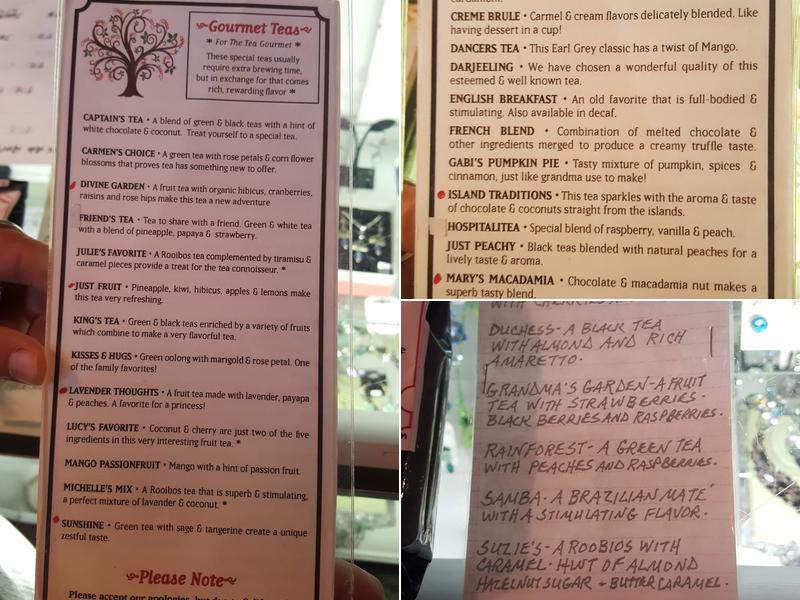 ~Gourmet Teas~
* For The Tea Gourmet *
These special teas usually
require extra brewing time,
but in exchange for that comes
rich, rewarding flavor *
CAPTAIN'S TEA • A blend of green & black teas with a hint of
white chocolate & coconut. Treat yourself to a special tea.
CARMEN'S CHOICE • A green tea with rose petals & corn flower
blossoms that proves tea has something new to offer.
DIVINE GARDEN • A fruit tea with organic hibiscus, cranberries,
raisins and rose hips make this tea a new adventure
FRIEND'S TEA • Tea to share with a friend. Green & white tea
with a blend of pineapple, papaya & strawberry.
JULIE'S FAVORITE • A Rooibos tea complemented by tiramisu &
caramel pieces provide a treat for the tea connoisseur. *
JUST FRUIT • Pineapple, kiwi, hibicus, apples & lemons make
this tea very refreshing.
KING'S TEA • Green & black teas enriched by a variety of fruits
which combine to make a very flavorful tea.
KISSES & HUGS • Green oolong with marigold & rose petal. One
of the family favorites!
LAVENDER THOUGHTS • A fruit tea made with lavender, papaya
& peaches. A favorite for a princess!
LUCY'S FAVORITE • Coconut & cherry are just two of the five
ingredients in this very interesting fruit tea. *
MANGO PASSIONFRUIT • Mango with a hint of passion fruit.
MICHELLE'S MIX • A Rooibos tea that is superb & stimulating,
a perfect mixture of lavender & coconut. *
SUNSHINE • Green tea with sage & tangerine create a unique
zestful taste.
~Please Note~
Please accept our apologies, but
CREME BRULE • Carmel & cream flavors delicately blended. Like
having dessert in a cup!
DANCERS TEA • This Earl Grey classic has a twist of Mango.
DARJEELING • We have chosen a wonderful quality of this
esteemed & well known tea.
ENGLISH BREAKFAST • An old favorite that is full-bodied &
stimulating. Also available in decaf.
FRENCH BLEND • Combination of melted chocolate &
other ingredients merged to produce a creamy truffle taste.
GABI'S PUMPKIN PIE • Tasty mixture of pumpkin, spices &
cinnamon, just like grandma use to make!
ISLAND TRADITIONS • This tea sparkles with the aroma & taste
of chocolate & coconuts straight from the islands.
HOSPITALITEA • Special blend of raspberry, vanilla & peach.
JUST PEACHY • Black teas blended with natural peaches for a
lively taste & aroma.
MARY'S MACADAMIA • Chocolate & macadamia nut makes a
superb tasty blend.
WITH CHERRIES
DUCHESS- A BLACK TEA
WITH ALMOND AND RICH
AMARETTO.
GRANDMA'S GARDEN-A FRUIT
TEA WITH STRAWBERRIES-
BLACK BERRIES AND RASPBERRIES.
RAINFOREST- A GREEN TEA
WITH PEACHES AND RASPBERRIES.
SAMBA- A BRAZILIAN MATE'
WITH A STIMULATING FLAVOR.
SUZIE'S- A ROOBIOS WITH
CARAMEL- HINT OF ALMOND
HAZELNUT SUGAR + BUTTER CARAMEL.